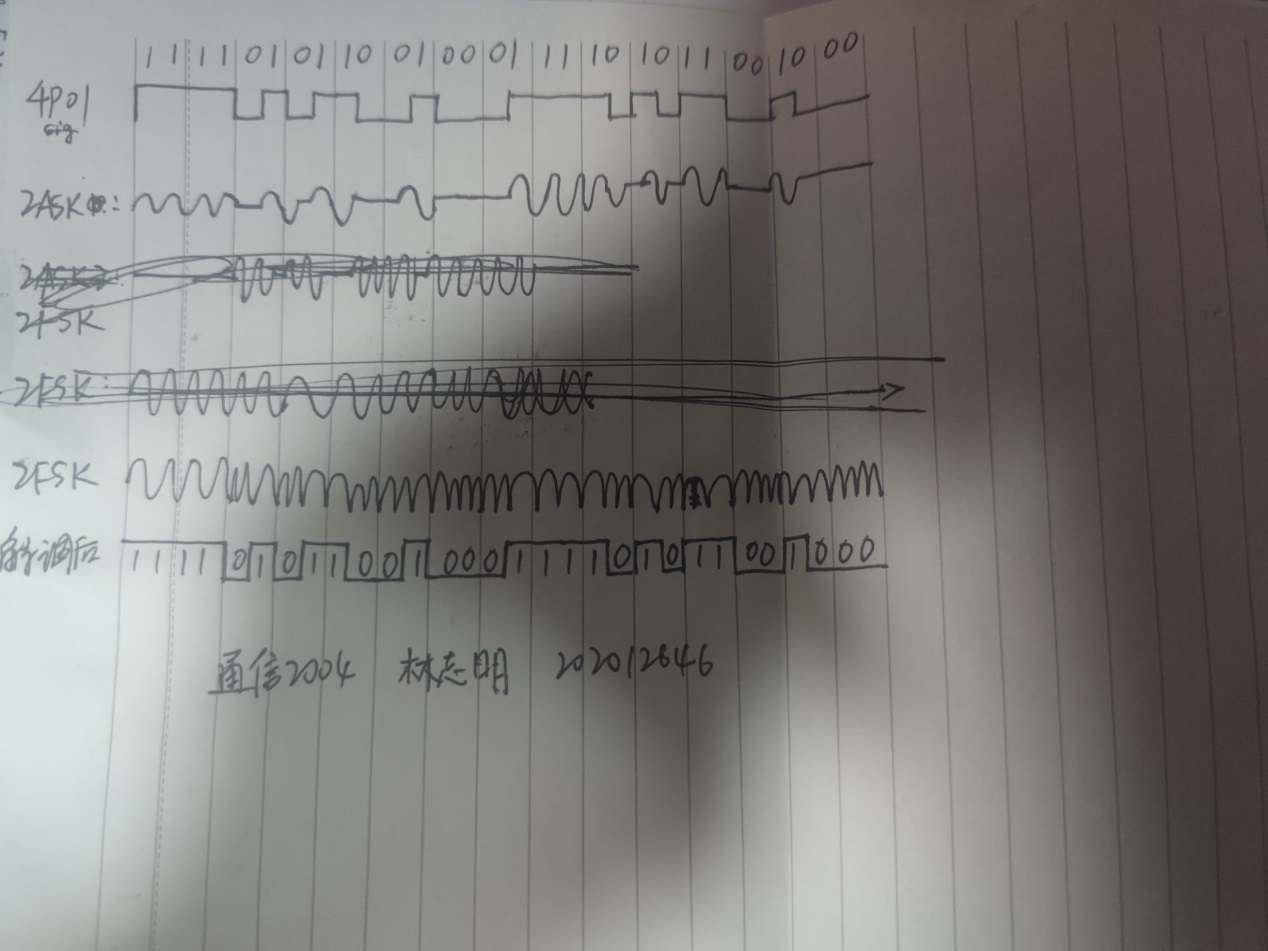 1 1 11 01 01 10 01 00 01 11 10 10 11 00 10 00
4P01
sig
2ASK :
2ASK2
2FSK
2FSK:
2FSK
解调后 1 1 1 1 0 1 0 1 1 0 0 1 0 0 0 1 1 1 1 0 1 0 1 1 0 0 1 0 0 0
通信2004 林志明 202012646